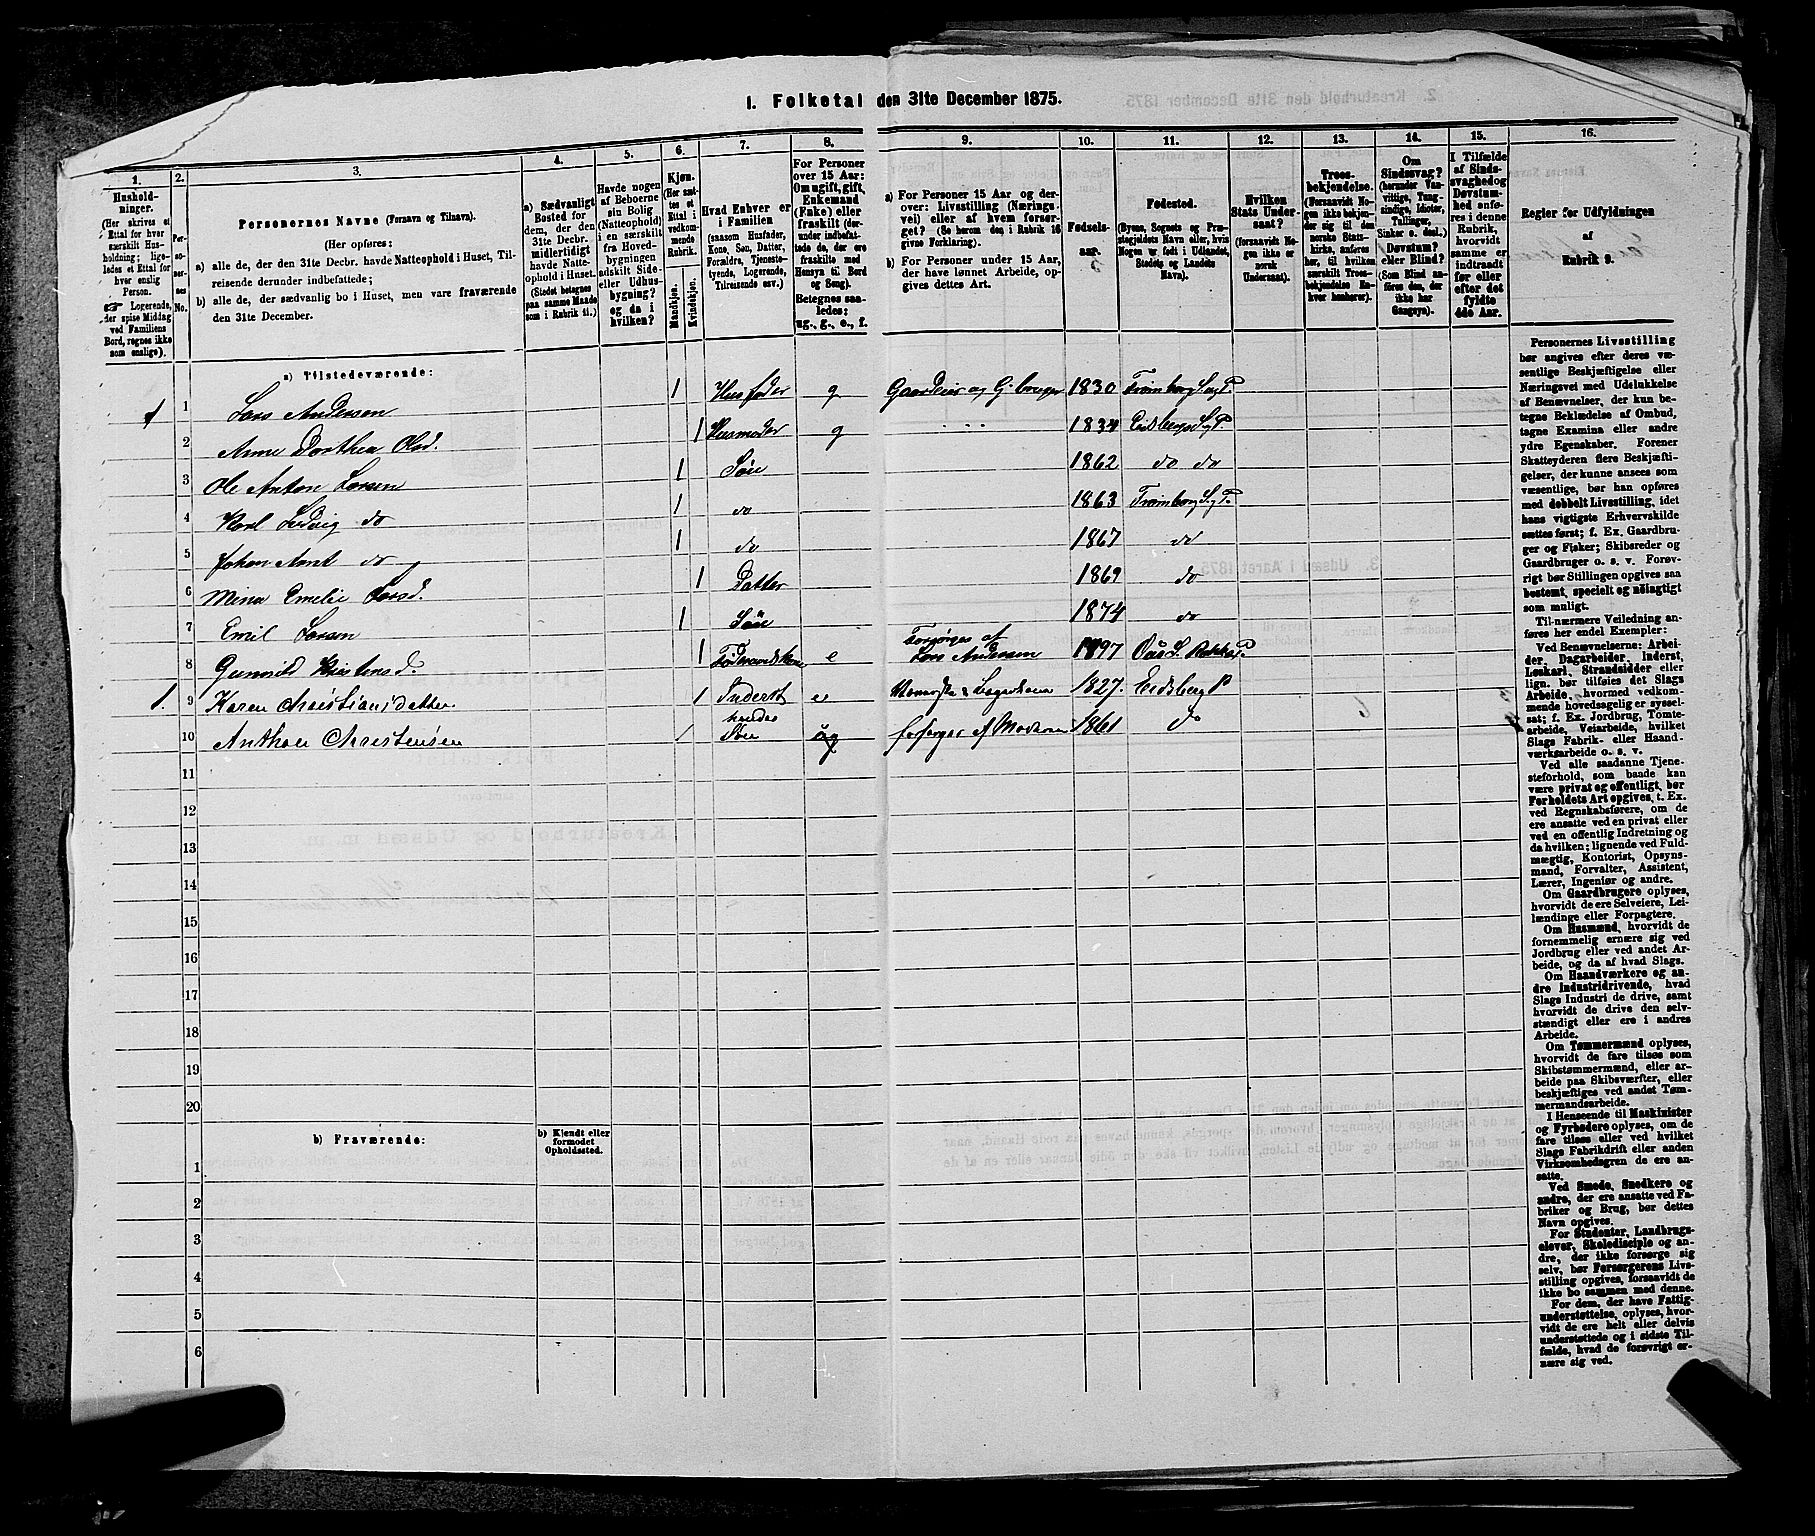 1. Folketal den 31te December 1875.
1. Hushold-
ninger.
(Her skrives et
Ettal for hver
særskilt Hus-
holdning; lige-
ledes et Ettal for
hver enslig
Person.
☞ Logerende,
der spise Middag
ved Familiens
Bord, regnes ikke
som enslige).
2.
Per-
soner-
nes
No.
3.
Personernes Navne (Fornavn og Tilnavn).
(Her opføres:
a) alle de, der den 31te Decbr. havde Natteophold i Huset, Til-
reisende derunder indbefattede;
b) alle de, der sædvanlig bo i Huset, men vare fraværende
den 31te December.
4.
a) Sædvanligt
Bosted for
dem, der den
31te Decbr.
midlertidigt
havde Natte-
ophold i Huset.
(Stedet betegnes
paa samme Maade
som i Rubrik 11.)
5.
Havde nogen
af Beboerne
sin Bolig
(Natteophold)
i en særskilt
fra Hoved-
bygningen
adskilt Side-
eller Udhus-
bygning?
og da i
hvilken?
6.
Kjøn.
(Her sæt-
tes et
Ettal i
vedkom-
mende
Rubrik.
Mandkjøn.
Kvindekjøn.
7.
Hvad Enhver er
i Familien
(saasom Husfader,
Kone, Søn, Datter,
Forældre, Tjeneste-
tyende, Logerende,
Tilreisende osv.)
8.
For Personer
over 15 Aar:
Om ugift, gift,
Enkemand
(Enke) eller
fraskilt (der-
under indbefat-
tede de, der ere
fraskilte med
Hensyn til Bord
og Seng).
Betegnes saa-
ledes:
ug., g., e., f.
9.
a) For Personer 15 Aar og der-
over: Livsstilling (Nærings-
vei) eller af hvem forsør-
get? (Se herom den i Rubrik 16
givne Forklaring).
b) For Personer under 15 Aar,
der have lønnet Arbeide, op-
gives dettes Art.
10.
Fødsels-
aar.
11.
Fødested.
(Byens, Sognets og Præs-
tegjeldets Navn eller, hvis
Nogen er født i Udlandet,
Stedets og Landets
Navn).
12.
Hvilken
Stats Under-
saat?
(forsaavidt No-
gen ikke er
norsk
Undersaat).
13.
Troes-
bekjendelse.
(Forsaavidt No-
gen ikke bekjen-
der sig til den
norske Stats-
kirke, anføres
her, til hvilket
særskilt Troes-
bekjendelse En-
hver henhører).
14.
Om
Sindssvag?
(herunder Van-
vittige, Tung-
sindige, Idioter,
Tullinger,
Sinker o. desl.)
Døvstum?
eller Blind?
(Som Blind an-
føres den, der
ikke har
Gangsyn).
15.
I Tilfælde
af Sinds-
svaghed og
Døvstum-
hed anfø-
res i denne
Rubrik,
hvorvidt
samme er
indtraadt
før eller
efter det
fyldte
4de Aar.
16.
Regler for Udfyldningen
af
Rubrik 9.
a) Tilstedeværende:
1 1 Lars Andersen 1 Husfader g Gaardeier og G. bruger 1830 Trømborg S. og P.
2 Anne Dorthea Olsd. 1 Husmoder g 1834 Eidsberg S. og P.
3 Ole Anton Larsen 1 Søn 1862 do do
4 Karl Ludvig do 1 do 1863 Trømborg S. og P.
5 Johan Arnt do 1 do 1867 do
6 Mena Emelie Larsd. 1 Datter 1869 do
7 Emil Larsen 1 Søn 1874 do
8 Gunnild Kristensd. 1 Føderaadskone e Forsørges af
Lars Andersen 1797
1. 9 Karen Christiansdatter 1 Inderst e 1827. Eidsberg P
10 Anthon Christensen 1 hendes
Søn ug forsørges af Moderen 1861 do
11
12
13
14
15
16
17
18
19
20
b) Fraværende:
b) Kjendt eller
formodet
Opholdssted.
1
2
3
4
5
6
Personernes Livsstilling
bør angives efter deres væ-
sentlige Beskjæftigelse eller
Næringsvei med Udelukkelse
af Benævnelser, der kun be-
tegne Beklædelse af Ombud,
tagne Examina eller andre
ydre Egenskaber. Forener
Skatteyderen flere Beskjæfti-
gelser, der kunne ansees som
væsentlige, bør han opføres
med dobbelt Livsstilling, idet
hans vigtigste Erhvervskilde
sættes først; f. Ex. Gaardbru-
ger og Fisker; Skibsreder og
Gaardbruger o. s. v. Forøv-
rigt bør Stillingen opgives saa
bestemt, specielt og nøiagtigt
som muligt.
Til nærmere Veiledning an-
føres her endel Exempler:
Ved Benævnelserne: Arbei-
der, Dagarbeider, Inderst,
Løskarl, Strandsidder eller
lign. bør tilføies det Slags
Arbeide, hvormed vedkom-
mende hovedsagelig er syssel-
sat; f. Ex. Jordbrug, Tomte-
arbeide, Veiarbeide, hvilket
Slags Fabrik- eller Haand-
værksarbeide o. s. v.
Ved alle saadanne Tjene-
steforhold, som baade kan
være privat og offentligt, bør
Forholdets Art opgives, t. Ex.
ved Regnskabsførere, om de
ere ansatte ved en privat eller
ved en offentlig Indretning og
da hvilken; lignende ved Fuld-
mægtig, Kontorist, Opsyns-
mand, Forvalter, Assistent,
Lærer, Ingeniør og andre.
Om Gaardbrugere oplyses,
hvorvidt de ere Selveiere, Lei-
lændinge eller Forpagtere.
Om Husmænd, hvorvidt de
fornemmelig ernære sig ved
Jordbrug eller ved andet Ar-
beide, og da af hvad Slags.
Om Haandværkere og an-
dre Industridrivende, hvad
Slags Industri de drive, samt
hvorvidt de drive den selv-
stændigt eller ere i andres
Arbeide.
Om Tømmermænd oplyses,
hvorvidt de fare tilsøs som
Skibstømmermænd, eller ar-
beide paa Skibsværfter, eller
beskjæftiges ved andet Tøm-
mermandsarbeide.
I Henseende til Maskinister
og Fyrbødere oplyses, om de
fare tilsøs eller ved hvilket
Slags Fabrikdrift eller anden
Virksomhedsgren de ere an-
satte.
Ved Smede, Snedkere og
andre, der ere ansatte ved Fa-
briker og Brug, bør dettes
Navn opgives.
For Studenter, Landbrugs-
elever, Skoledisciple og an-
dre, der ikke forsørge sig
selv, bør Forsørgerens Livs-
stilling opgives, forsaavidt de
ikke bo sammen med denne.
For dem, der have Fattig-
understøttelse, oplyses, hvor-
vidt de ere helt eller delvis
understøttede og i sidste Til-
fælde, hvad de forøvrigt er-
nære sig ved.